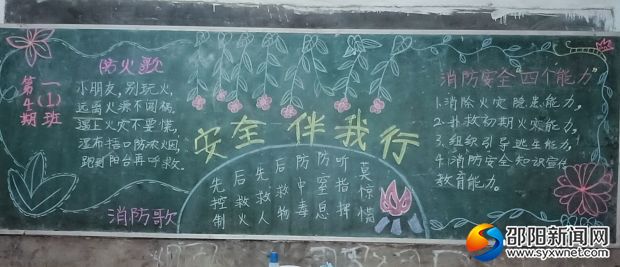 防火歌
一(1)班
第4期
小朋友，别玩火，
远离火源不闯祸，
遇上火灾不要慌，
湿布捂口防浓烟，
跑到阳台再呼救。
安全伴我行
消防歌
先控制
后救火
先救人
后救物
防中毒
防窒息
听指挥
莫惊慌
消防安全"四个能力"
1.消除火灾隐患能力。
2.扑救初期火灾能力。
3.组织引导逃生能力。
4.消防安全知识宣传
教育能力。
邵阳新闻网
www.syxwnet.com